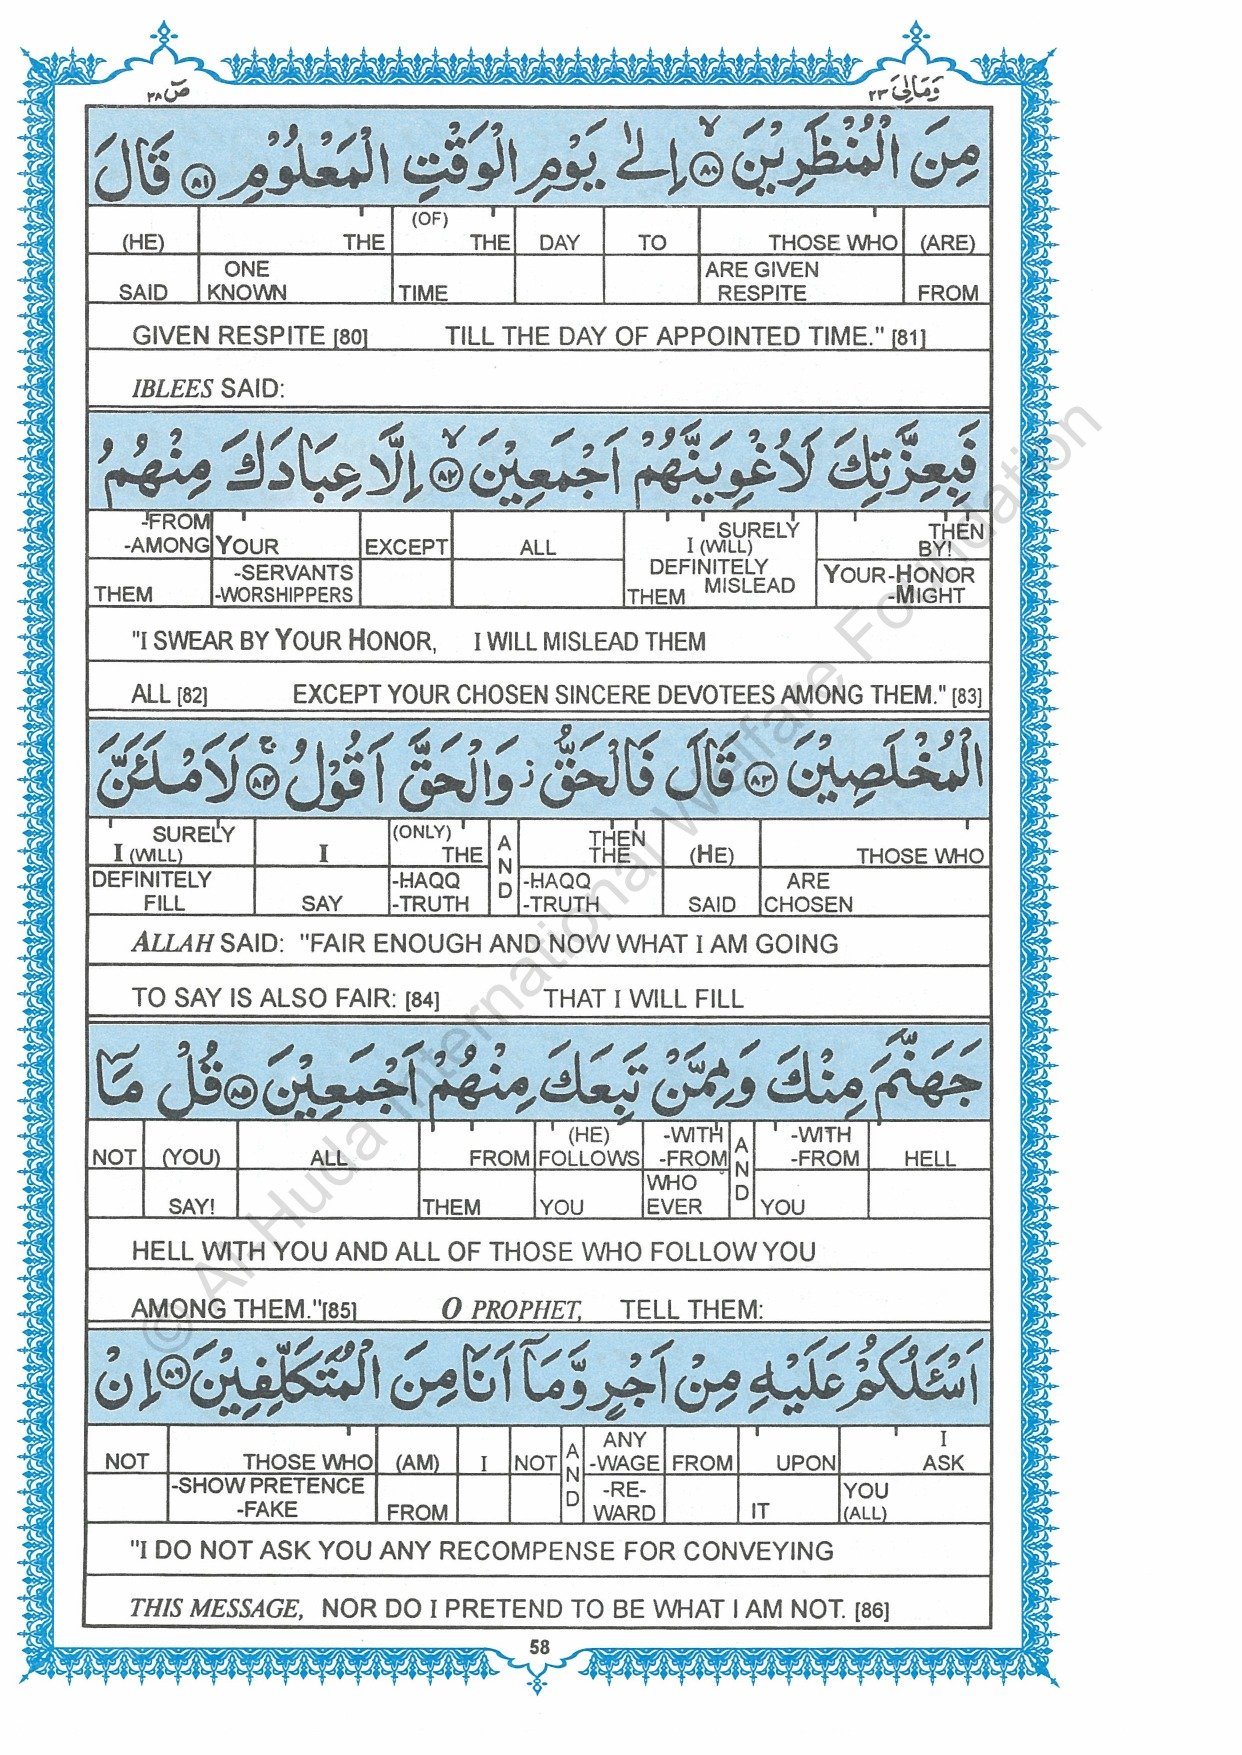 صٓ ٣٨
وَمَالِىَ ٢٣
مِنَ الْمُنْظَرِيْنَ ﴿٨٠﴾ اِلٰى يَوْمِ الْوَقْتِ الْمَعْلُوْمِ ﴿٨١﴾ قَالَ
(HE) THE (OF) THE DAY TO THOSE WHO (ARE)
SAID ONE KNOWN TIME ARE GIVEN RESPITE FROM
GIVEN RESPITE [80] TILL THE DAY OF APPOINTED TIME." [81]
IBLEES SAID:
فَبِعِزَّتِكَ لَاُغْوِيَنَّهُمْ اَجْمَعِيْنَ ﴿٨٢﴾ اِلَّا عِبَادَكَ مِنْهُمُ
-FROM -AMONG YOUR EXCEPT ALL SURELY I (WILL) DEFINITELY MISLEAD THEN BY!
THEM -SERVANTS -WORSHIPPERS THEM YOUR-HONOR -MIGHT
"I SWEAR BY YOUR HONOR, I WILL MISLEAD THEM
ALL [82] EXCEPT YOUR CHOSEN SINCERE DEVOTEES AMONG THEM." [83]
الْمُخْلَصِيْنَ ﴿٨٣﴾ قَالَ فَالْحَقُّ ز وَالْحَقَّ اَقُوْلُ ﴿٨٤﴾ لَاَمْلَئَنَّ
SURELY I (WILL) I (ONLY) THE AND THEN THE (HE) THOSE WHO
DEFINITELY FILL SAY -HAQQ -TRUTH -HAQQ -TRUTH SAID ARE CHOSEN
ALLAH SAID: "FAIR ENOUGH AND NOW WHAT I AM GOING
TO SAY IS ALSO FAIR: [84] THAT I WILL FILL
جَهَنَّمَ مِنْكَ وَمِمَّنْ تَبِعَكَ مِنْهُمْ اَجْمَعِيْنَ ﴿٨٥﴾ قُلْ مَآ
NOT (YOU) ALL FROM (HE) FOLLOWS -WITH -FROM AND -WITH -FROM HELL
SAY! THEM YOU WHO EVER YOU
HELL WITH YOU AND ALL OF THOSE WHO FOLLOW YOU
AMONG THEM."[85] O PROPHET, TELL THEM:
اَسْئَلُكُمْ عَلَيْهِ مِنْ اَجْرٍ وَّمَآ اَنَا مِنَ الْمُتَكَلِّفِيْنَ ﴿٨٦﴾ اِنْ
NOT THOSE WHO (AM) I NOT AND ANY -WAGE FROM UPON I ASK
-SHOW PRETENCE -FAKE FROM -RE- WARD IT YOU (ALL)
"I DO NOT ASK YOU ANY RECOMPENSE FOR CONVEYING
THIS MESSAGE, NOR DO I PRETEND TO BE WHAT I AM NOT. [86]
58
© Al-Huda International Welfare Foundation